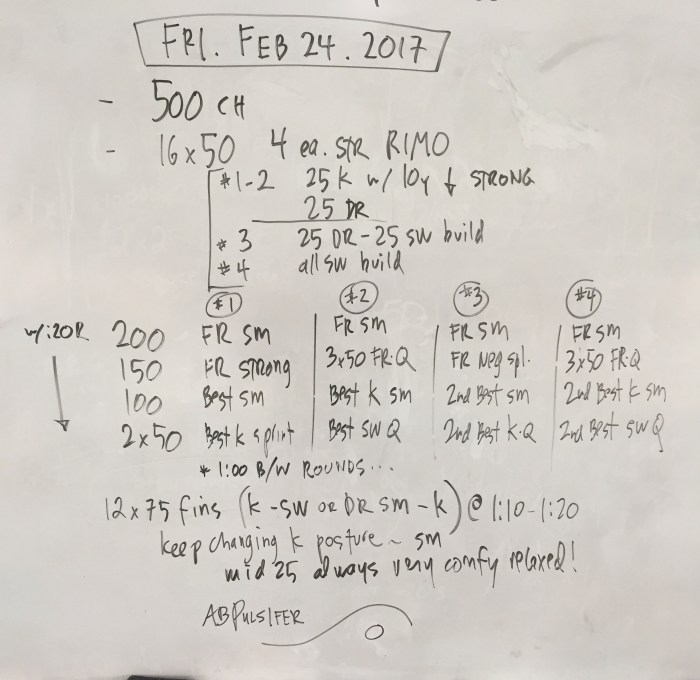 FRI. FEB 24. 2017
- 500 CH
- 16x50 4 ea. STR RIMO
#1-2 25 K w/ 10y ↓ STRONG
25 DR
#3 25 DR-25 SW build
#4 all SW build
#1 #2 #3 #4
w/:20R 200 FR SM FR SM FR SM FR SM
150 FR STRONG 3x50 FR-Q FR Neg spl. 3x50 FR-Q
100 Best SM Best K SM 2nd Best SM 2nd Best K SM
2x50 Best K sprint Best SW Q 2nd Best K-Q 2nd Best SW Q
* 1:00 B/W ROUNDS...
12x75 fins (K-SW OR DR SM-K) @ 1:10-1:20
keep changing K posture ~ SM
mid 25 always very comfy relaxed!
ABPULSIFER